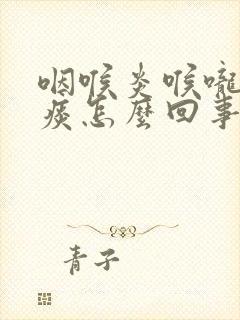 咽喉炎喉嚨
痰怎麼回事
青子